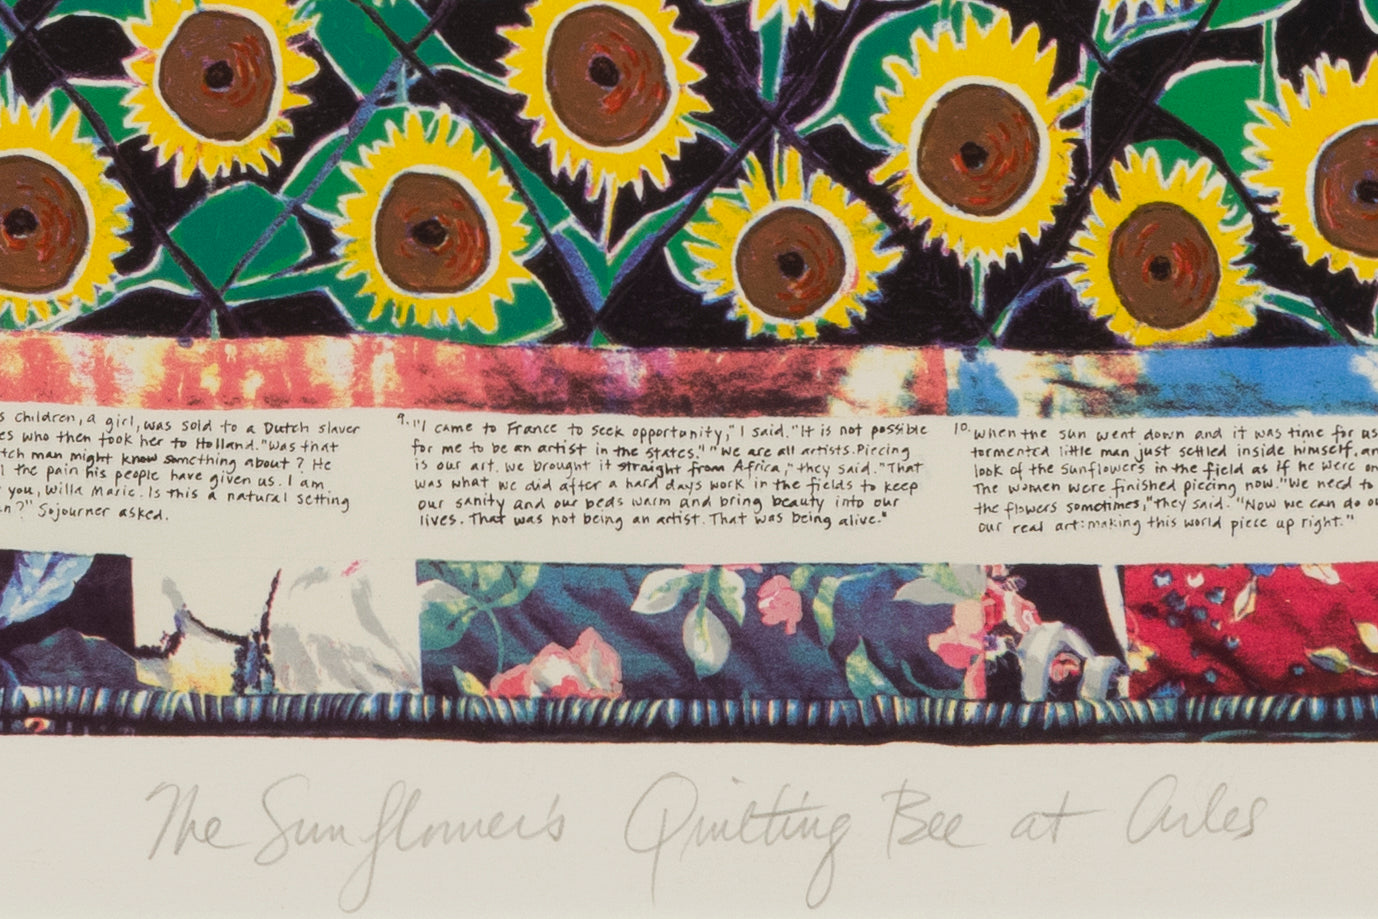 s children, a girl, was sold to a Dutch slaver
es who then took her to Holland. "Was that
tch man might know something about? He
l the pain his people have given us. I am
you, Willa Marie. Is this a natural setting
n?" Sojourner asked.
9. "I came to France to seek opportunity," I said. "It is not possible
for me to be an artist in the States." "We are all artists. Piecing
is our art. We brought it straight from Africa," they said. "That
was what we did after a hard days work in the fields to keep
our sanity and our beds warm and bring beauty into our
lives. That was not being an artist. That was being alive."
10. When the sun went down and it was time for us
tormented little man just settled inside himself, an
look of the sunflowers in the field as if he were on
The women were finished piecing now. "We need to
the flowers sometimes," they said. "Now we can do ou
our real art: making this world piece up right."
The Sunflower's Quilting Bee at Arles